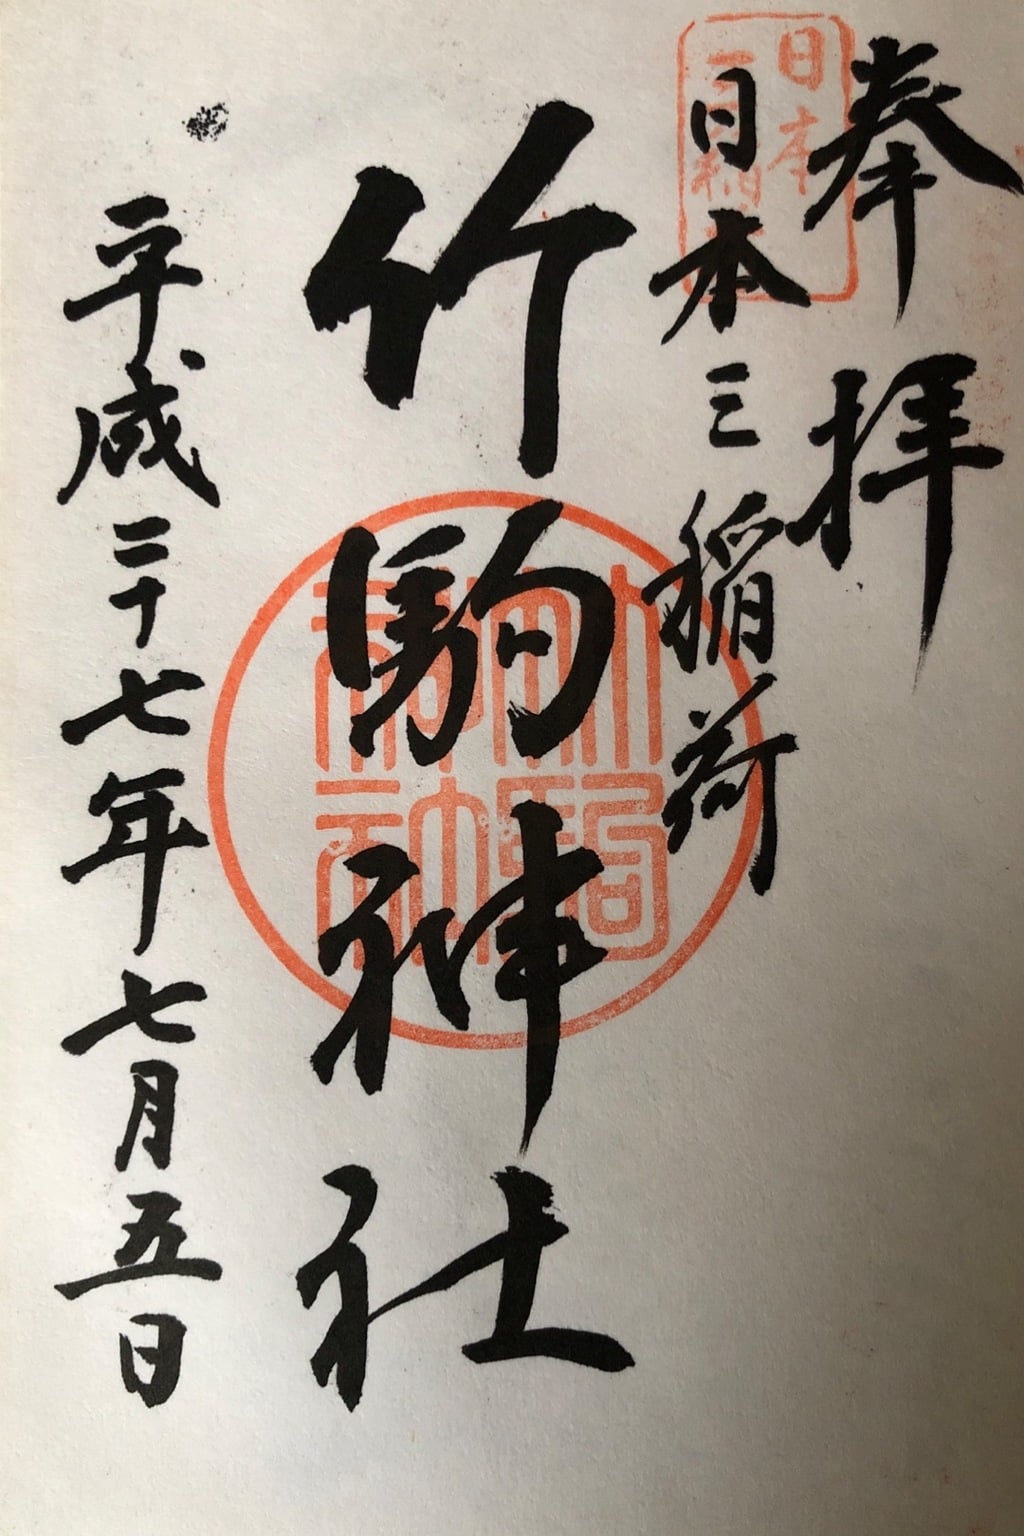 奉拝
日本三稲荷
竹駒神社
平成二十七年七月五日
日本
三稲荷
竹駒
神社